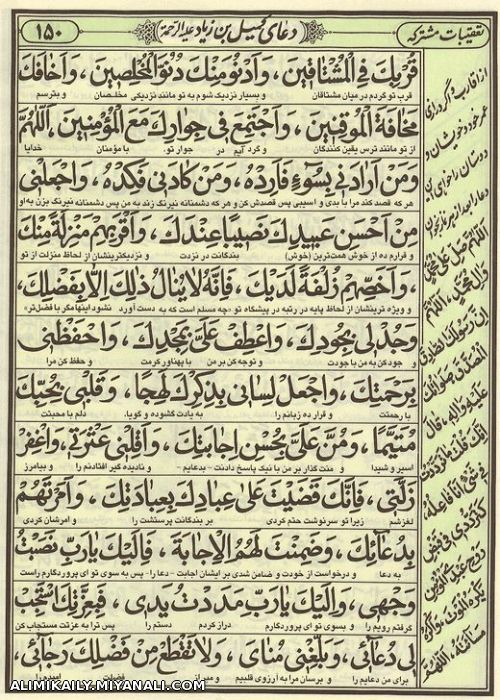 تعقیبات مشترکه
دعای کمیل بن زیاد علیه الرحمة
۱۵۰
قُرْبِكَ فِی الْمُشْتاقینَ، وَاَدْنُوَ مِنْكَ دُنُوَّ الْمُخْلِصینَ، وَاَخافَكَ
قرب تو گردم در میان مشتاقان و بسیار نزدیک شوم به تو مانند نزدیکی مخلصان و بترسم
مَخافَةَ الْمُوقِنینَ، وَاَجْتَمِعَ فی جِوارِكَ مَعَ الْمُؤْمِنینَ، اَللّهُمَّ
از تو مانند ترس یقین کنندگان و گرد آیم در جوار تو با مؤمنان خدایا
وَمَنْ اَرادَنی بِسُوءٍ فَاَرِدْهُ، وَمَنْ كادَنی فَكِدْهُ، وَاجْعَلْنی
هر که قصد کند مرا با بدی و آسیبی پس قصدش کن و هر که دشمنانه نیرنگ زند به من پس دشمنانه نیرنگ بزن به او
مِنْ اَحْسَنِ عَبیدِكَ نَصیبًا عِنْدَكَ، وَاَقْرَبِهِمْ مَنْزِلَةً مِنْكَ
و قرارم ده از خوش همت‌ترین (خوش) بندگانت در نزدت و نزدیکترینشان از لحاظ منزلت از تو
، وَاَخَصِّهِمْ زُلْفَةً لَدَیْكَ، فَاِنَّهُ لا یُنالُ ذلِكَ اِلّا بِفَضْلِكَ،
و ویژه ترینشان از لحاظ پایه در رتبه در پیشگاه تو «چه مسلم است که به دست آورد نشود اینها مگر با فضل تو»
وَجُدْ لی بِجُودِكَ، وَاعْطِفْ عَلَیَّ بِمَجْدِكَ، وَاحْفَظْنی
و جود کن به من با جودت و توجه کن بر من با پهناور کرمت و حفظ کن مرا
بِرَحْمَتِكَ، وَاجْعَلْ لِسانی بِذِكْرِكَ لَهِجًا، وَقَلْبی بِحُبِّكَ
با رحمتت و قرار ده زبانم را به یادت گشوده و گویا. دلم با محبتت
مُتَیَّمًا، وَمُنَّ عَلَیَّ بِحُسْنِ اِجابَتِكَ، وَاَقِلْنی عَثْرَتی، وَاغْفِرْ
اسیر و شیدا و منت گذار بر من با نیک پاسخ دادنت - بدعایم - و نادیده گیر افتادنم را و بیامرز
زَلَّتی، فَاِنَّكَ قَضَیْتَ عَلی عِبادِكَ بِعِبادَتِكَ، وَاَمَرْتَهُمْ
لغزشم زیرا تو سرنوشت حتم کردی بر بندگانت پرستشت را و امرشان کردی
بِدُعائِكَ، وَضَمِنْتَ لَهُمُ الْاِجابَةَ، فَاِلَیْكَ یا رَبِّ نَصَبْتُ
به دعا و درخواست از خودت و ضامن شدی بر ایشان اجابت - دعا را - پس به سوی تو ای پروردگارم راست
وَجْهی، وَاِلَیْكَ یا رَبِّ مَدَدْتُ یَدی، فَبِعِزَّتِكَ اسْتَجِبْ
گرفتم رویم را و بسوی تو ای پروردگارم دراز کردم دستم را پس ترا به عزتت مستجاب کن
لی دُعائی، وَبَلِّغْنی مُنایَ، وَلا تَقْطَعْ مِنْ فَضْلِكَ رَجائی،
برای من دعایم را و برسان مرا به آرزوی قلبیم و مبر از فضلت امیدم را
از اقارب و اگر درازی
عمر خود و خویشان و
دوستان را خواهی این
دعا را بعد از هر نماز بخوان
اَللّهُمَّ صَلِّ عَلی مُحَمَّدٍ
وَ آلِ مُحَمَّدٍ، اَللّهُمَّ
اِنَّ رَسُولَكَ الصّادِقَ
الْمُصَدَّقَ صَلَواتُكَ
عَلَیْهِ وَ آلِهِ، قالَ
اِنَّكَ قُلْتَ ما تَرَدَّدْتُ
فی شَیْءٍ اَنَا فاعِلُهُ
كَتَرَدُّدی فی قَبْضِ
رُوحِ عَبْدِیَ الْمُؤْمِنِ
یَكْرَهُ الْمَوْتَ وَ اَكْرَهُ
مَسائَتَهُ، اَللّهُمَّ
ALIMIKAILY.MIYANALI.COM